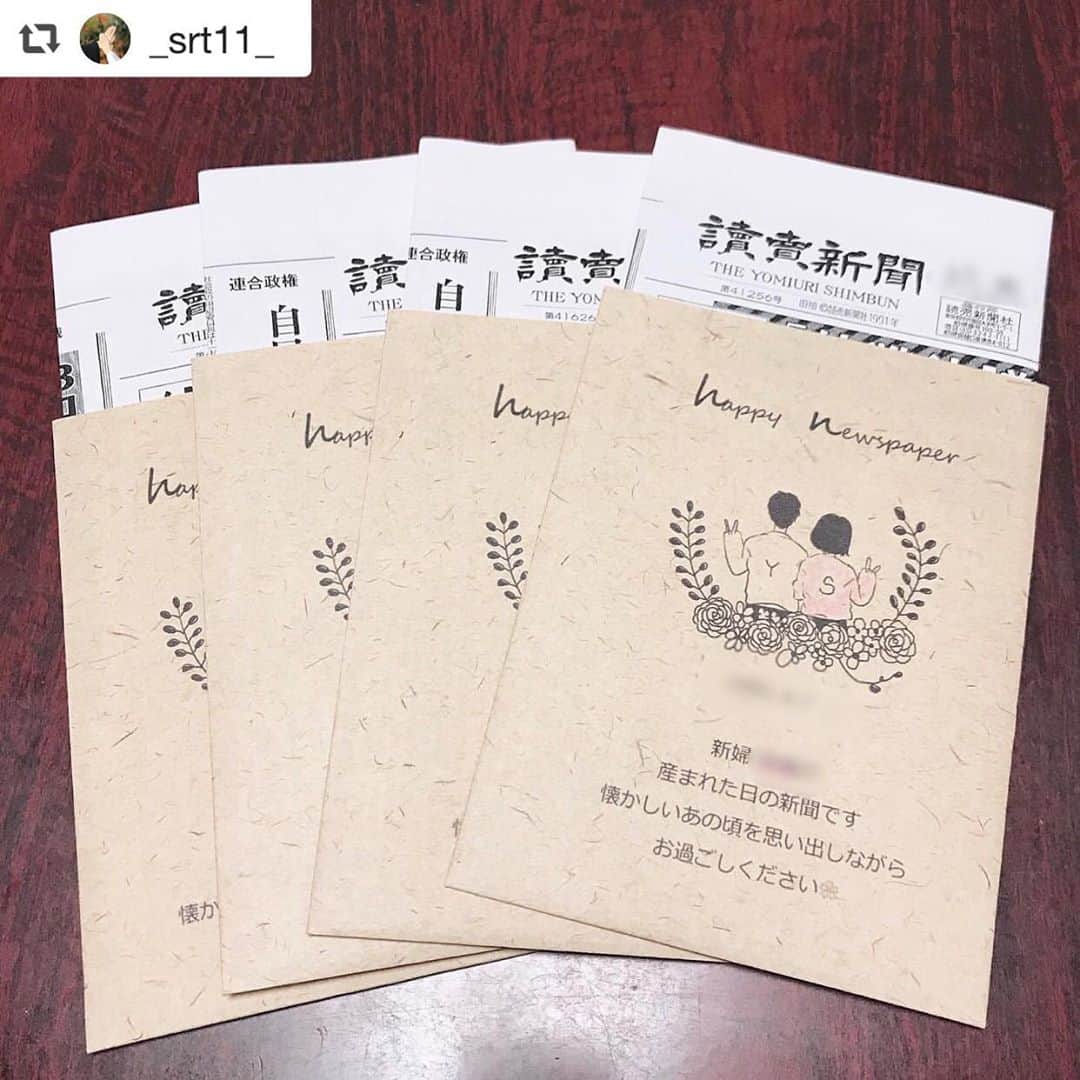 _srt11_
連合政権
自
讀
THE
連合政権
自
讀賣
THE YOMIURI
第41626
讀賣新聞
THE YOMIURI SHIMBUN
第41256号
©読売新聞社1991年
読売新聞社
happy newspaper
Y S
新婦
産まれた日の新聞です
懐かしいあの頃を思い出しながら
お過ごしください
happ
happ
hap
懐か